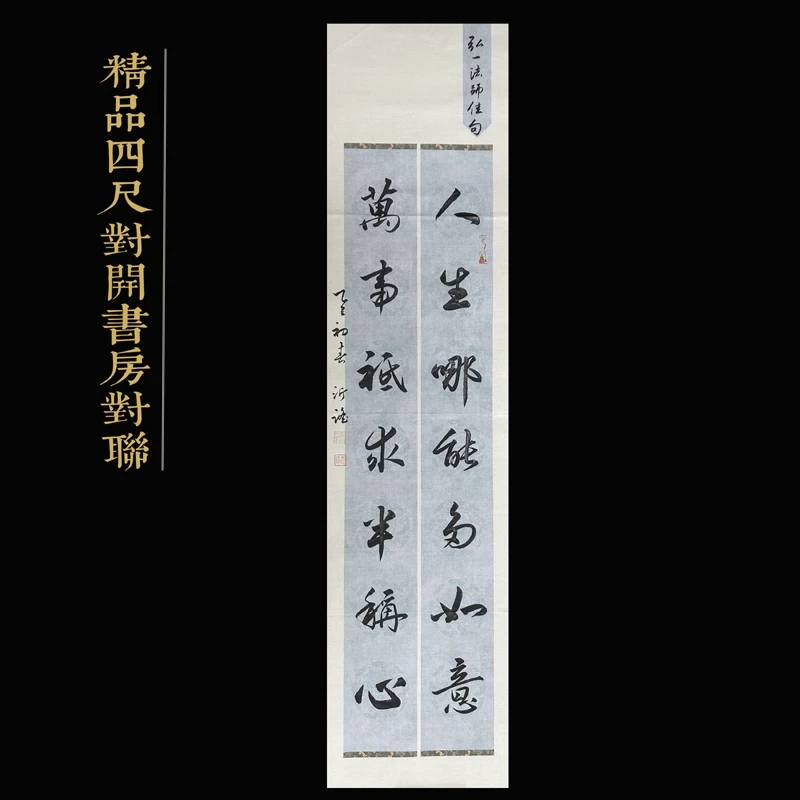 精品四尺對開書房對聯
弘一法師佳句
人生哪能多如意
萬事祗求半稱心
乙巳初春 沂謠